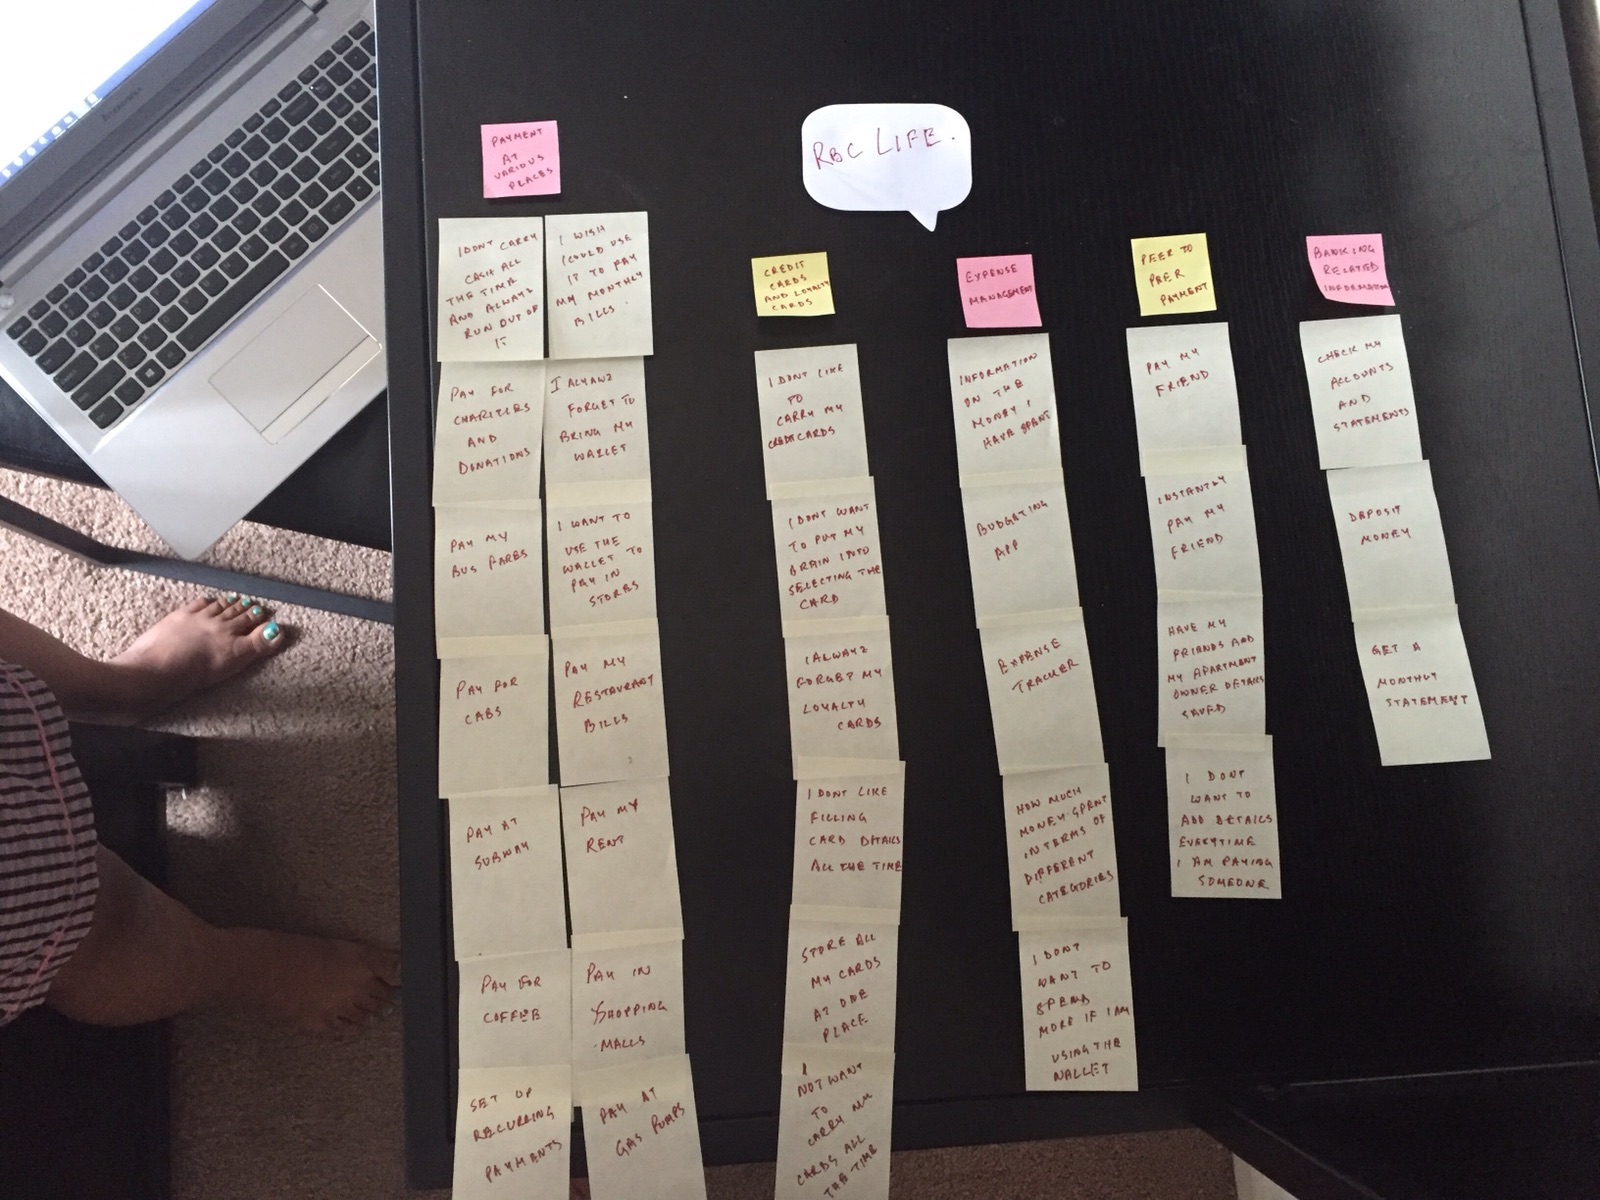 RBC LIFE.
PAYMENT
AT
VARIOUS
PLACES
I DONT CARRY
CASH ALL
THE TIME
AND ALWAYZ
RUN OUT OF
IT
PAY FOR
CHARITIES
AND
DONATIONS
PAY MY
BUS FARES
PAY FOR
CABS
PAY AT
SUBWAY
PAY FOR
COFFEE
SET UP
RECURRING
PAYMENTS
I WISH
I COULD USE
IT TO PAY
MY MONTHLY
BILLS.
I ALWAYZ
FORGET TO
BRING MY
WALLET
I WANT TO
USE THE
WALLET TO
PAY IN
STORES
PAY MY
RESTAURANT
BILLS
PAY MY
RENT
PAY IN
SHOPPING
MALLS
PAY AT
GAS PUMPS
CREDIT
CARDS
AND LOYALTY
CARDS
I DONT LIKE
TO
CARRY MY
CREDIT CARDS
I DONT WANT
TO PUT MY
BRAIN INTO
SELECTING THE
CARD
I ALWAYZ
FORGET MY
LOYALTY
CARDS
I DONT LIKE
FILLING
CARD DETAILS
ALL THE TIME
STORE ALL
MY CARDS
AT ONE
PLACE
I
NOT WANT
TO
CARRY MY
CARDS ALL
THE TIME
EXPENSE
MANAGEMENT
INFORMATION
ON THE
MONEY I
HAVE SPENT
BUDGETING
APP
EXPENSE
TRACKER
HOW MUCH
MONEY SPENT
IN TERMS OF
DIFFERENT
CATEGORIES
I DONT
WANT TO
SPEND
MORE IF I AM
USING THE
WALLET
PEER TO
PEER
PAYMENT
PAY MY
FRIEND
INSTANTLY
PAY MY
FRIEND
HAVE MY
FRIENDS AND
MY APARTMENT
OWNER DETAILS
SAVED
I DONT
WANT TO
ADD DETAILS
EVERYTIME
I AM PAYING
SOMEONE
BANKING
RELATED
INFORMATION
CHECK MY
ACCOUNTS
AND
STATEMENTS
DEPOSIT
MONEY
GET A
MONTHLY
STATEMENT